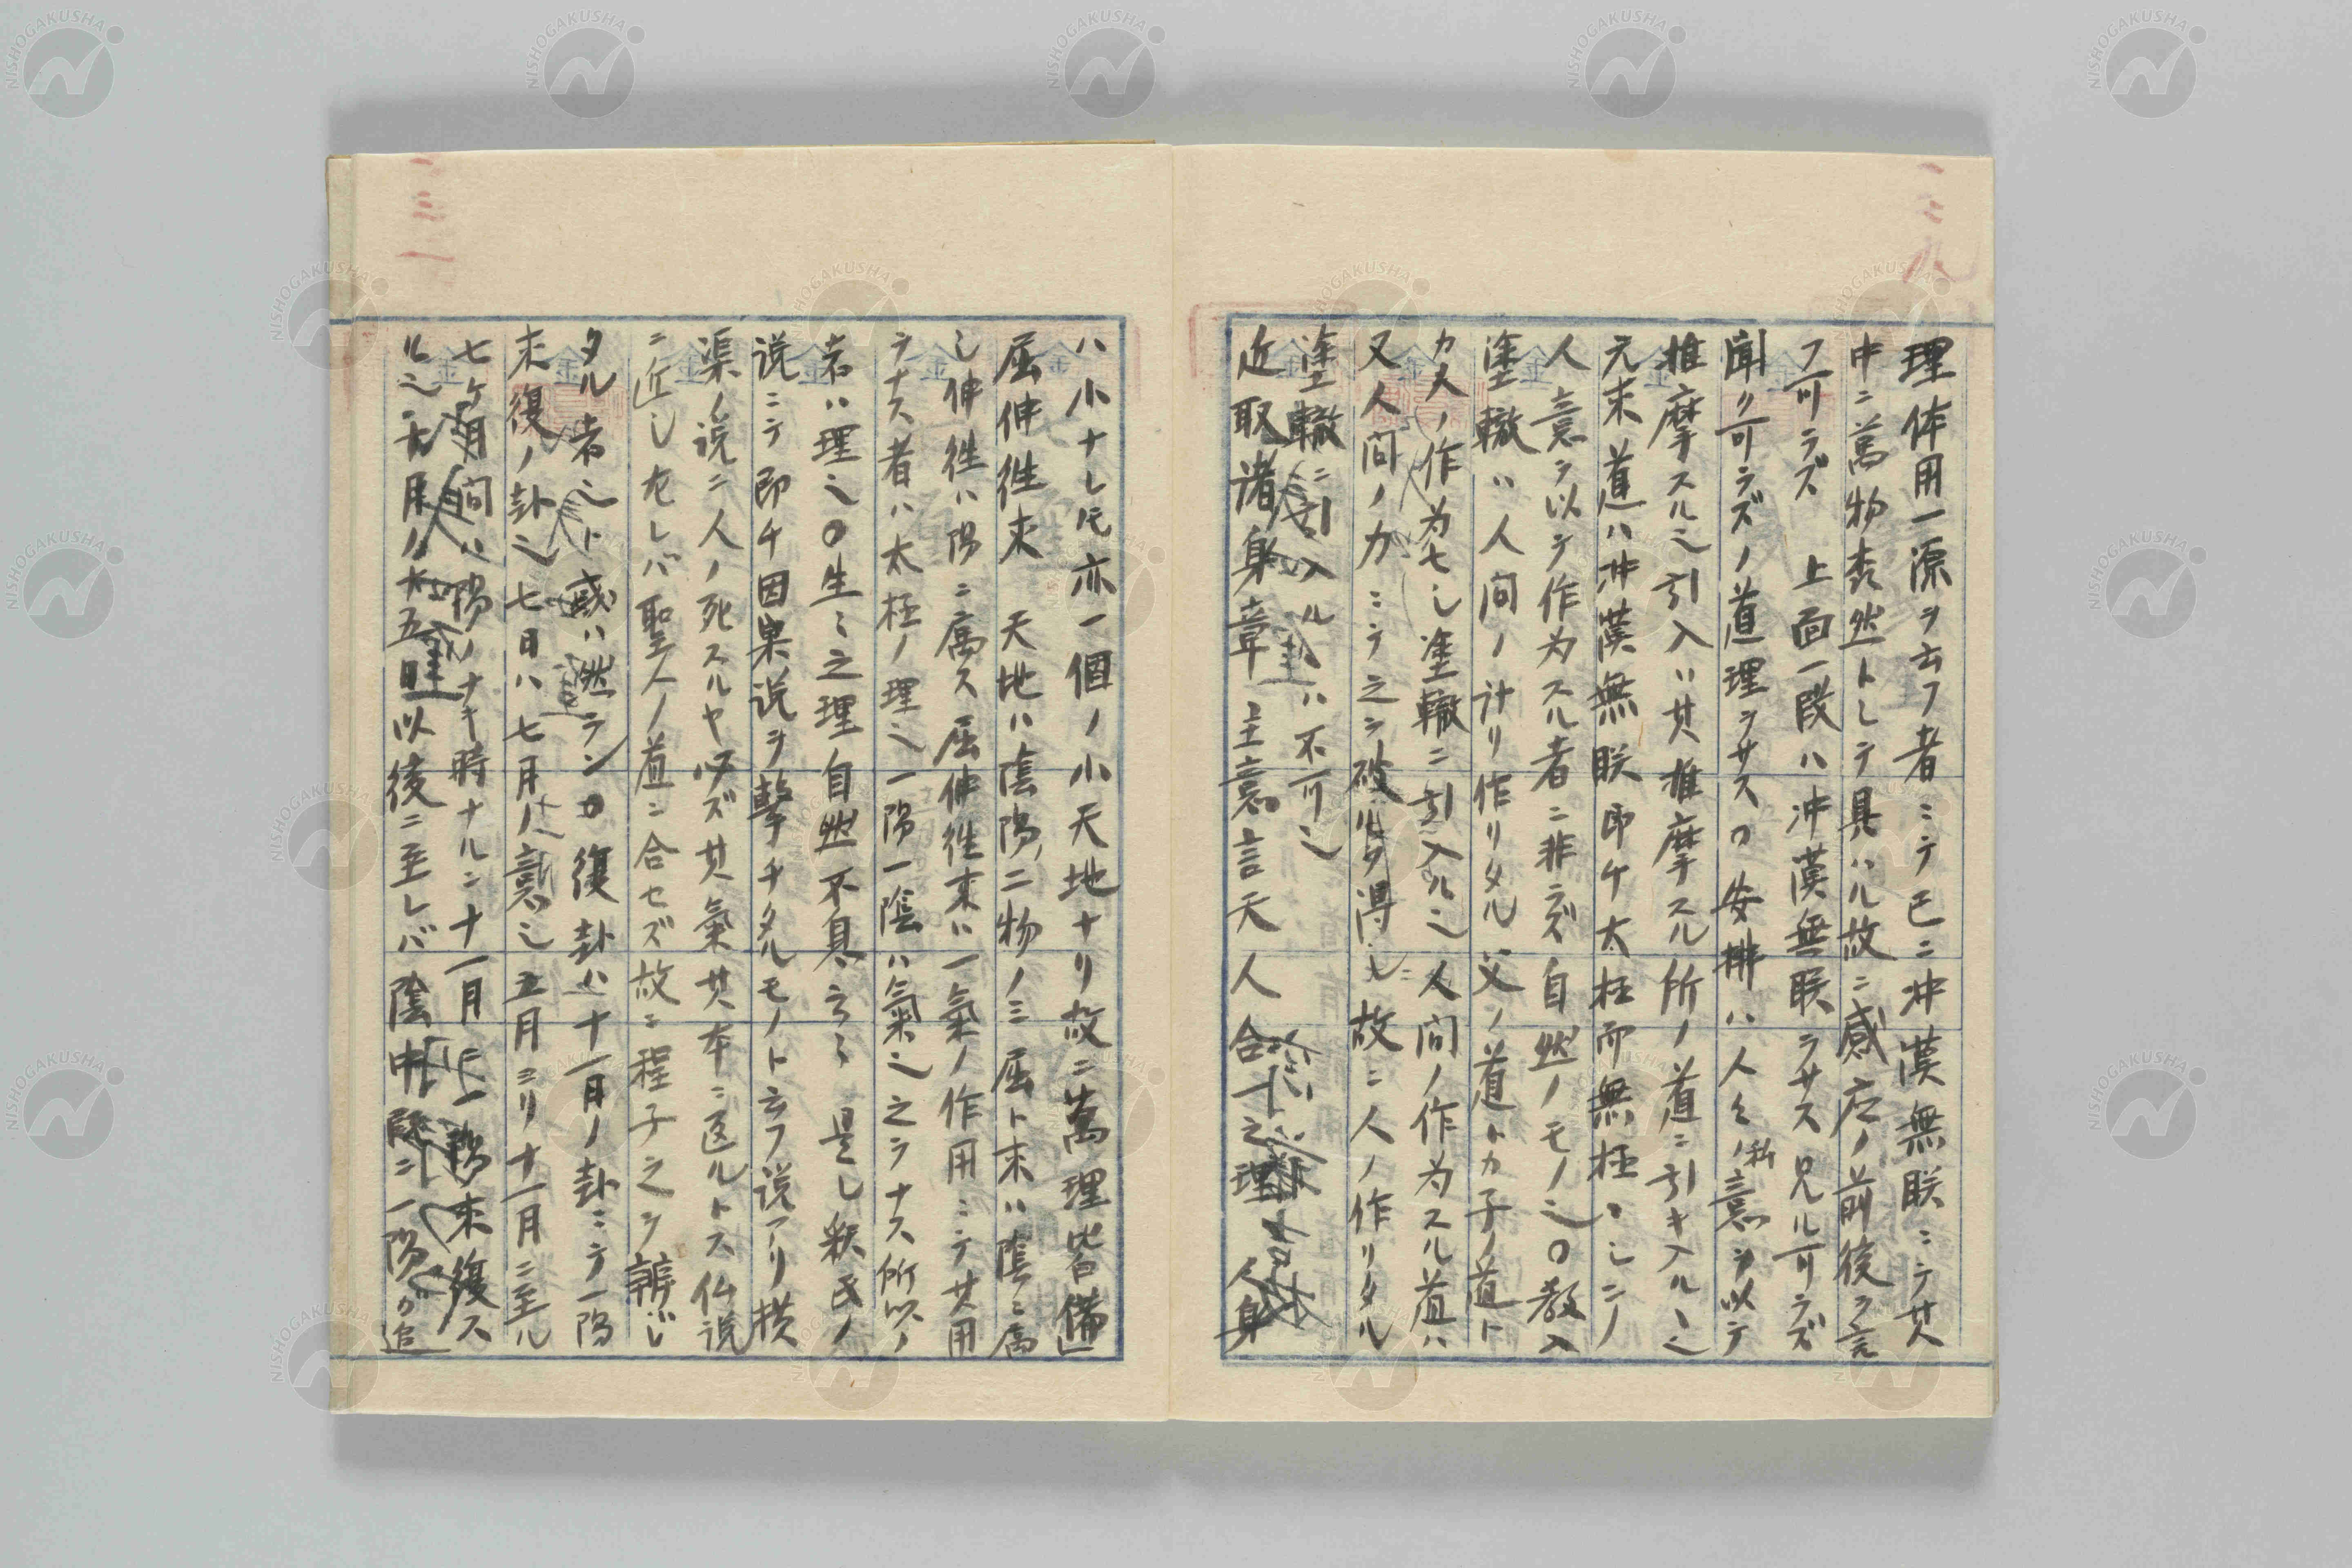 理体用一源ヲ云フ者ニテ已ニ冲漠無眹ニテ其
中ニ萬物森然トシテ具ハル故ニ感応ノ前後ヲ言
フ可ラズ 上面一段ハ冲漠無眹ヲサス見ル可ラズ
聞ク可ラズノ道理ヲサス〇安排ハ人々ノ私意ヲ以テ
推摩スル也引入ハ其推摩スル所ノ道ニ引キ入ルヽ也
元来道ハ冲漠無眹即チ太極而無極ヽシニノ
人意ヲ以テ作為スル者ニ非ズ自然ノモノ也〇教入
塗轍ハ人間ノ計リ作リタル父ノ道トカ子ノ道ト
カ人ノ作為セシ塗轍ニ引入ル也人間ノ作為スル道ハ
又人間ノ力ニテ之ヲ破ル得レ故ニ人ノ作リタル
塗轍ニ引入ルハ不可也
近取諸身章 主意言天人合一之理 人身
ハ小ナレ𪜈亦一個ノ小天地ナリ故ニ萬理皆備
屈伸往来 天地ハ陰陽ノ二物ノミ屈ト来ハ陰ニ属
し伸往ハ陽ニ属ス屈伸往来ハ一氣ノ作用ニテ其用
ヲナス者ハ太極ノ理也一陽一陰ハ氣也之ヲナス所以ノ
者ハ理也〇生々之理自然不息云々 是レ釈氏ノ
説ニテ即チ因果説ヲ撃チタルモノト云フ説アリ横
渠ノ説ニ人ノ死スルヤ必ズ其氣其本ニ返ルトス仏説
ニ近し左レバ聖人ノ道ニ合セズ故ニ程子之ヲ辨じ
タル者也ト或ハ然ラン〇復卦ハ十一月ノ卦ニテ一陽
来復ノ卦也七日ハ七月ノ意也五月ヨリ十一月ニ至ル
七ヶ月間ハ陽ノナキ時ナルニ十一月ニ一陽来復ス
ル也 五 以後ニ至レバ陰中 ニ一陽ヲ追
二三一